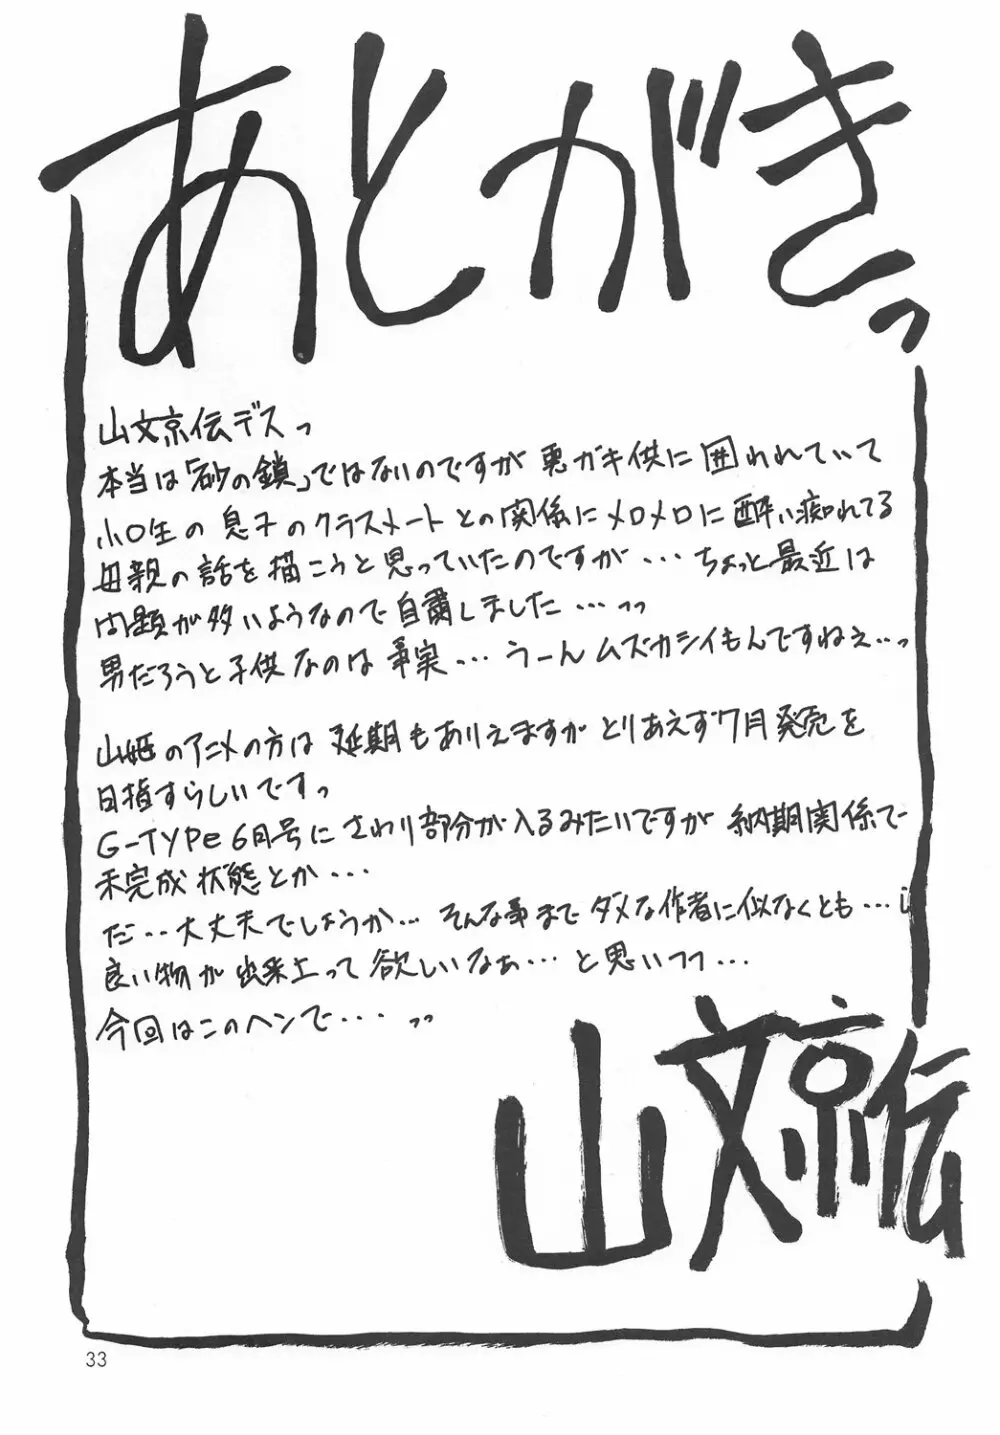 あとがきっ
山文京伝デスっ
本当は「砂の鎖」ではないのですが悪ガキ供に囲われれていて
小〇生の息子のクラスメートとの関係にメロメロに酔い痴れてる
母親の話を描こうと思っていたのですが・・・ちょっと最近は
問題が多いようなので自粛しました・・・っっ
男だろうと子供なのは事実・・・うーんムズカシイもんですねぇ・・・っ
山姫のアニメの方は延期もありえますがとりあえず7月発売を
目指すらしいですっ
G-TYPe6月号にさわり部分が入るみたいですが納期関係で
未完成状態とか・・・
だ・・・大丈夫でしょうか・・・そんな事までダメな作者に似なくとも・・・い
良い物が出来上って欲しいなぁ・・・と思いつつ・・・
今回はこのヘンで・・・っっ
山文京伝
33